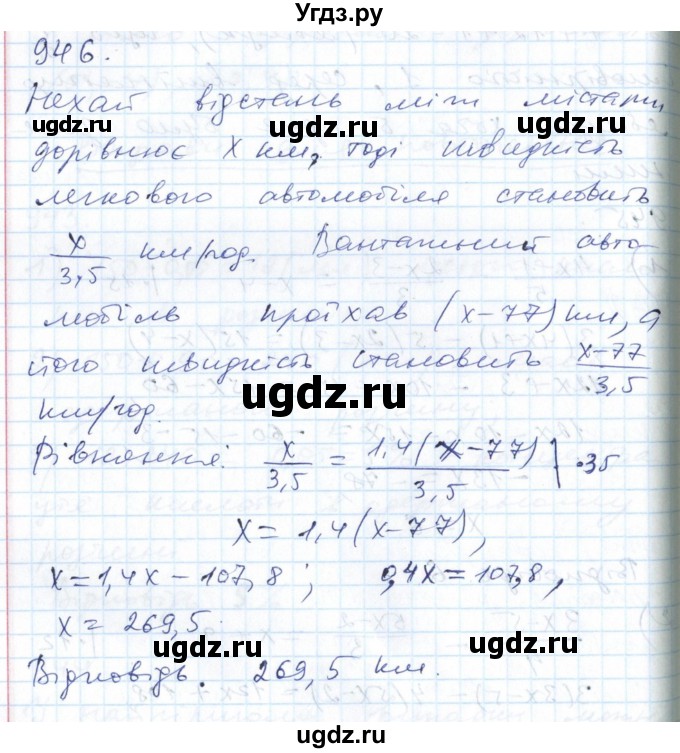 Угдз.ру
946.
Нехай відстань між містами
дорівнює x км, тоді швидкість
легкового автомобіля становить
x/3,5 км/год. Вантажний авто-
мобіль проїхав (x-77) км, а
його швидкість становить (x-77)/3,5
км/год.
Рівняння: x/3,5 = 1,4(x-77)/3,5 | ·35
x = 1,4(x-77),
x = 1,4x - 107,8; 0,4x = 107,8,
x = 269,5.
Відповідь. 269,5 км.
ugdz.ru
ugdz.ru
ugdz.ru
ugdz.ru
ugdz.ru
ugdz.ru
ugdz.ru
ugdz.ru
ugdz.ru
ugdz.ru
ugdz.ru
ugdz.ru